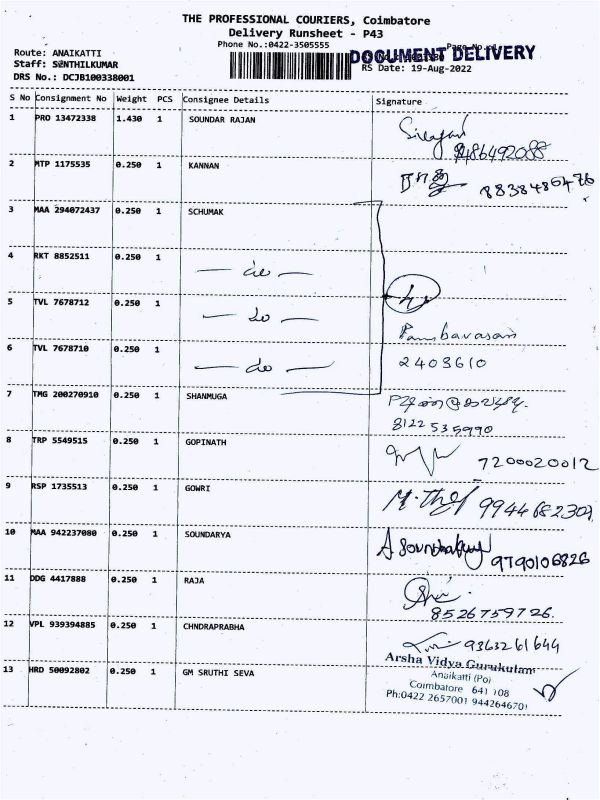 THE PROFESSIONAL COURIERS, Coimbatore
Delivery Runsheet - P43
Phone No.:0422-3505555
DOCUMENT DELIVERY
Route: ANAIKATTI
Staff: SENTHILKUMAR
RS Date: 19-Aug-2022
DRS No.: DCJB100338001
S No Consignment No Weight PCS Consignee Details Signature
1 PRO 13472338 1.430 1 SOUNDAR RAJAN
2 MTP 1175535 0.250 1 KANNAN 8838486476
3 MAA 294072437 0.250 1 SCHUMAK
4 RKT 8852511 0.250 1 — do —
5 TVL 7678712 0.250 1 — do —
6 TVL 7678710 0.250 1 — do — 2403610
7 TMG 200270910 0.250 1 SHANMUGA
8122535990
8 TRP 5549515 0.250 1 GOPINATH 7200020012
9 RSP 1735513 0.250 1 GOWRI
10 MAA 942237080 0.250 1 SOUNDARYA
9790106826
11 DDG 4417888 0.250 1 RAJA
8526759726
12 VPL 939394885 0.250 1 CHNDRAPRABHA 9363261644
13 HRD 50092802 0.250 1 GM SRUTHI SEVA
Arsha Vidya Gurukulam
Anaikatti (Po)
Coimbatore 641 108
Ph:0422 2657001 9442646701